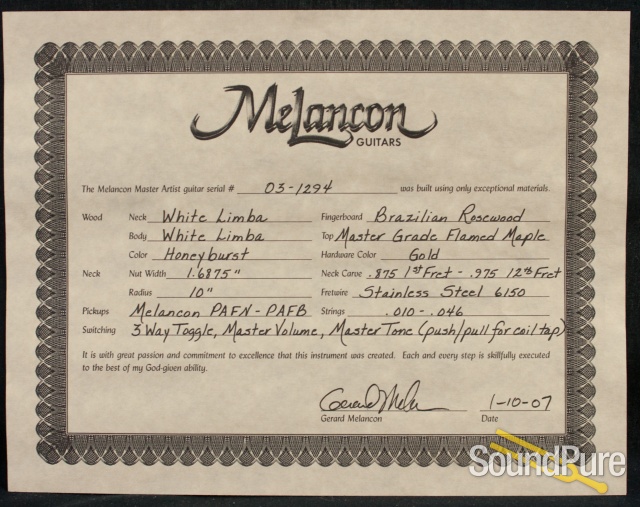 Melancon
GUITARS
The Melancon Master Artist guitar serial # 03-1294 was built using only exceptional materials.
Wood Neck White Limba Fingerboard Brazilian Rosewood
Body White Limba Top Master Grade Flamed Maple
Color Honeyburst Hardware Color Gold
Neck Nut Width 1.6875" Neck Carve .875 1st Fret - .975 12th Fret
Radius 10" Fretwire Stainless Steel 6150
Pickups Melancon PAFN - PAFB Strings .010 - .046
Switching 3 Way Toggle, Master Volume, Master Tone (push/pull for coil tap)
It is with great passion and commitment to excellence that this instrument was created. Each and every step is skillfully executed
to the best of my God-given ability.
Gerard Melancon 1-10-07
Gerard Melancon Date
SoundPure